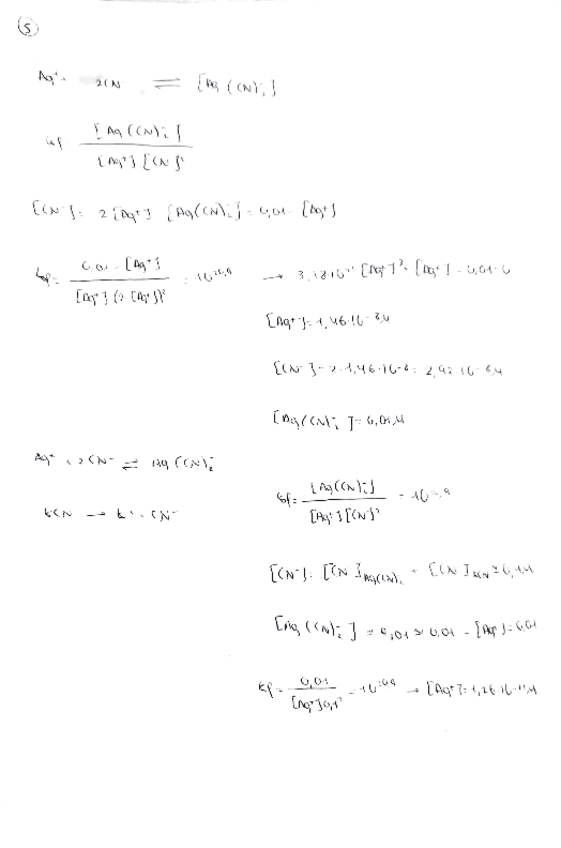 5
Ag⁺ + 2CN ⇌ [Ag(CN)₂⁻]
Kf [Ag(CN)₂⁻] / [Ag⁺][CN⁻]²
[CN⁻] = 2[Ag⁺] [Ag(CN)₂⁻] = 0,01 - [Ag⁺]
Kf = 0,01 - [Ag⁺] / [Ag⁺](2[Ag⁺])² = 10 → [Ag⁺]³ + [Ag⁺] - 0,01 = 0
[Ag⁺] = 1,46·10⁻⁸ M
[CN⁻] = 2·1,46·10⁻⁸ = 2,92·10⁻⁸ M
[Ag(CN)₂⁻] = 0,01 M
Ag⁺ + 2CN⁻ ⇌ Ag(CN)₂⁻
Kf = [Ag(CN)₂⁻] / [Ag⁺][CN⁻]² = 10
KCN → K⁺ + CN⁻
[CN⁻] = [CN⁻]Ag(CN)₂ + [CN⁻]KCN ≈ 0,1 M
[Ag(CN)₂⁻] = 0,01 - [Ag⁺] = 0,01
Kf = 0,01 / [Ag⁺]0,1² = 10 → [Ag⁺] = 1,26·10 M